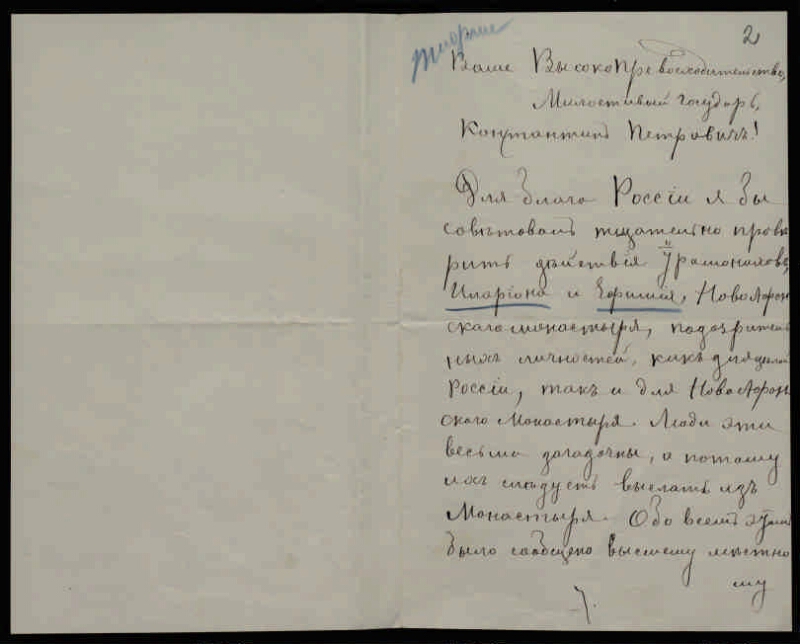 2
Ваше Высокопревосходительство,
Милостивый Государь,
Константинъ Петровичъ!
Для блага Россіи я бы
совѣтовалъ тщательно провѣ
рить дѣйствія Іеромонаховъ,
Иларіона и Ефимія, НовоАѳон
скаго монастыря, подозритель
ныхъ личностей, какъ для цѣлой
Россіи, такъ и для НовоАѳон
скаго Монастыря. Люди эти
весьма загадочны, а потому
ихъ слѣдуетъ выслать изъ
Монастыря. Обо всемъ этомъ
было сообщено высшему мѣстно
му